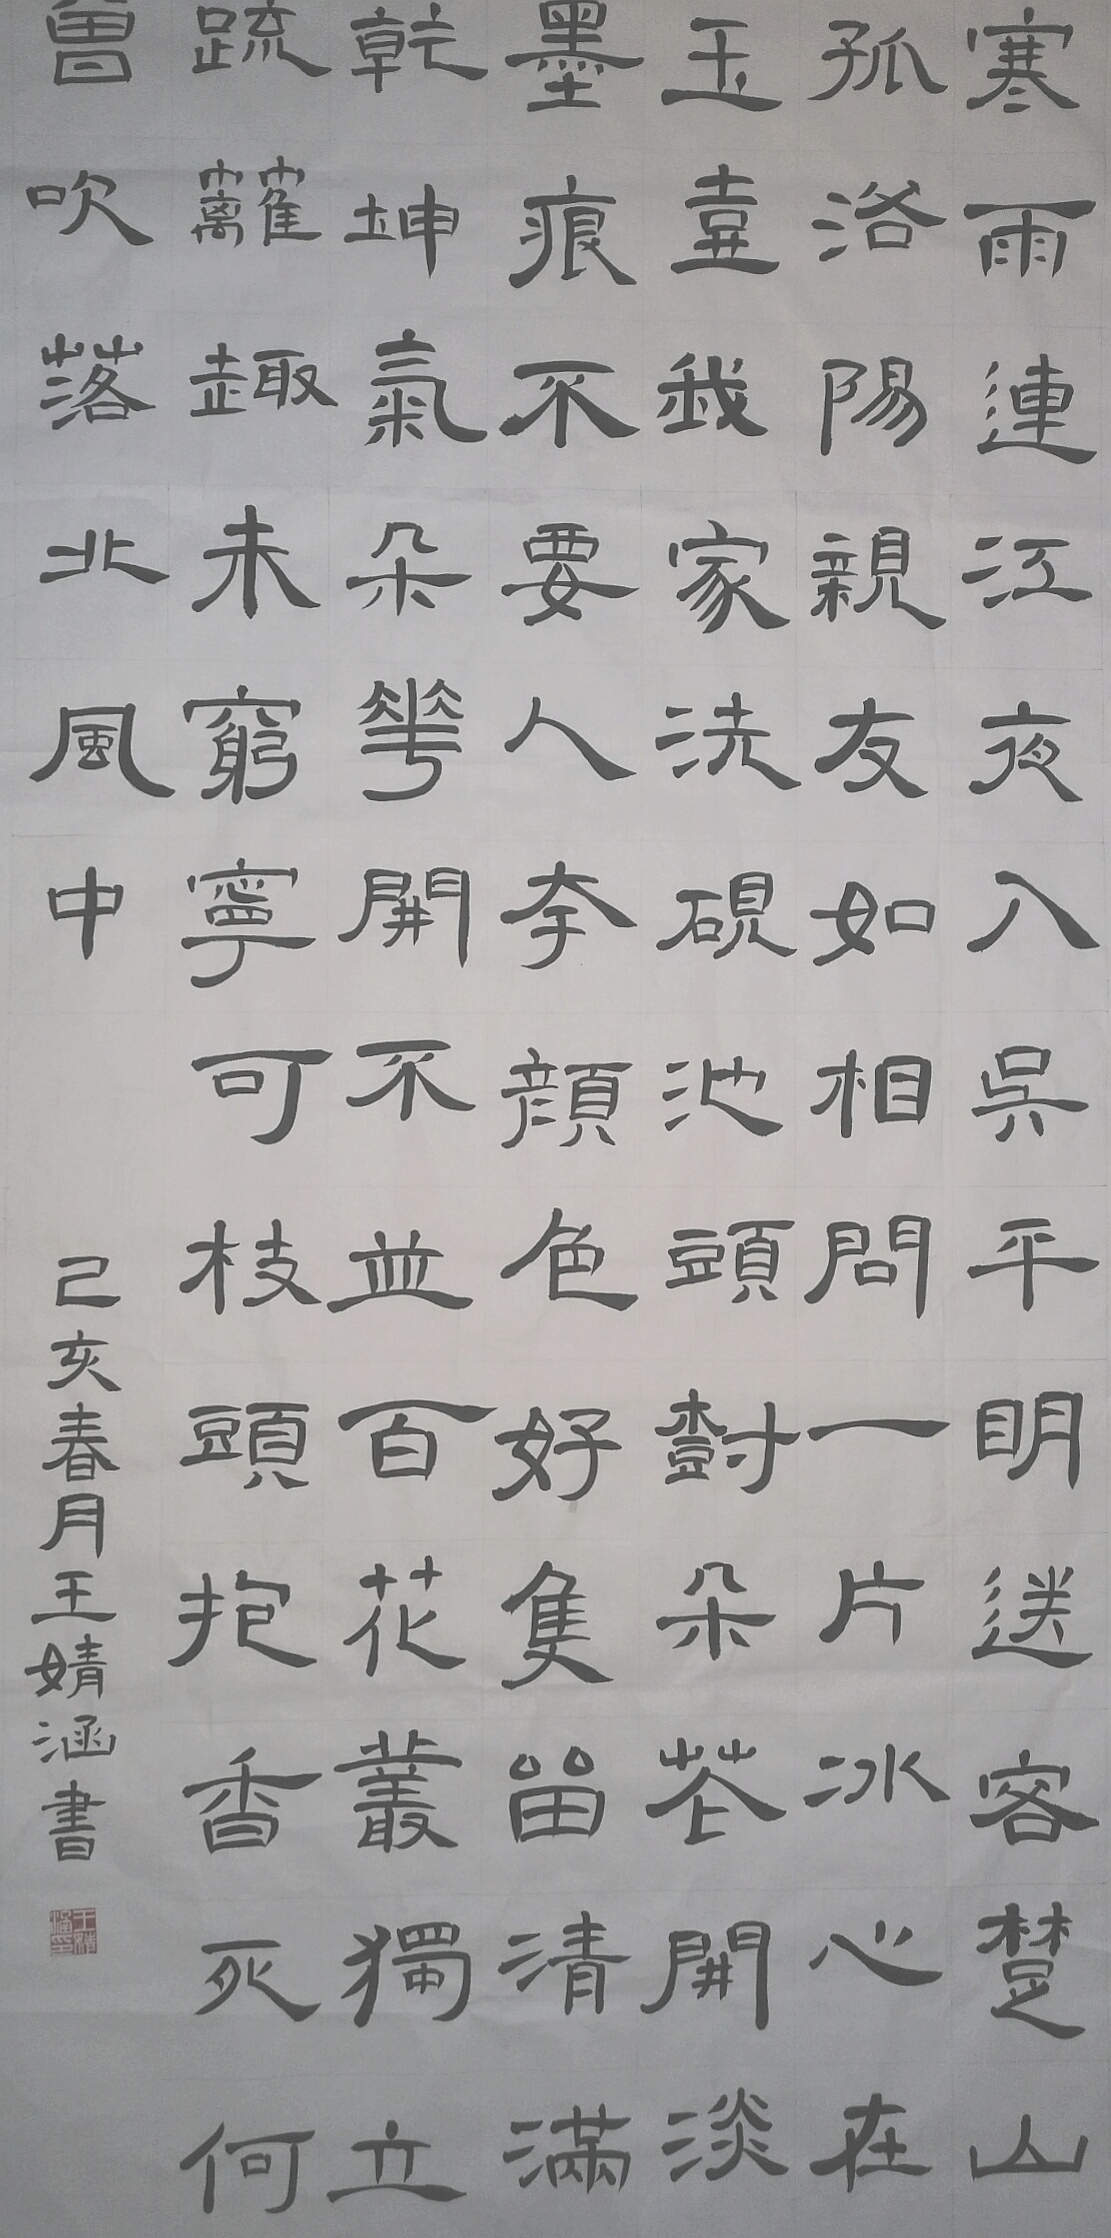 寒雨連江夜入吳平明送客楚山
孤洛陽親友如相問一片冰心在
玉壺我家洗硯池頭樹朵花開淡
墨痕不要人夸顏色好隻留清滿
乾坤氣朵華開不並百花叢獨立
疏籬趣未窮寧可枝頭抱香死何
曾吹落北風中
己亥春月王婧涵書
王婧涵印